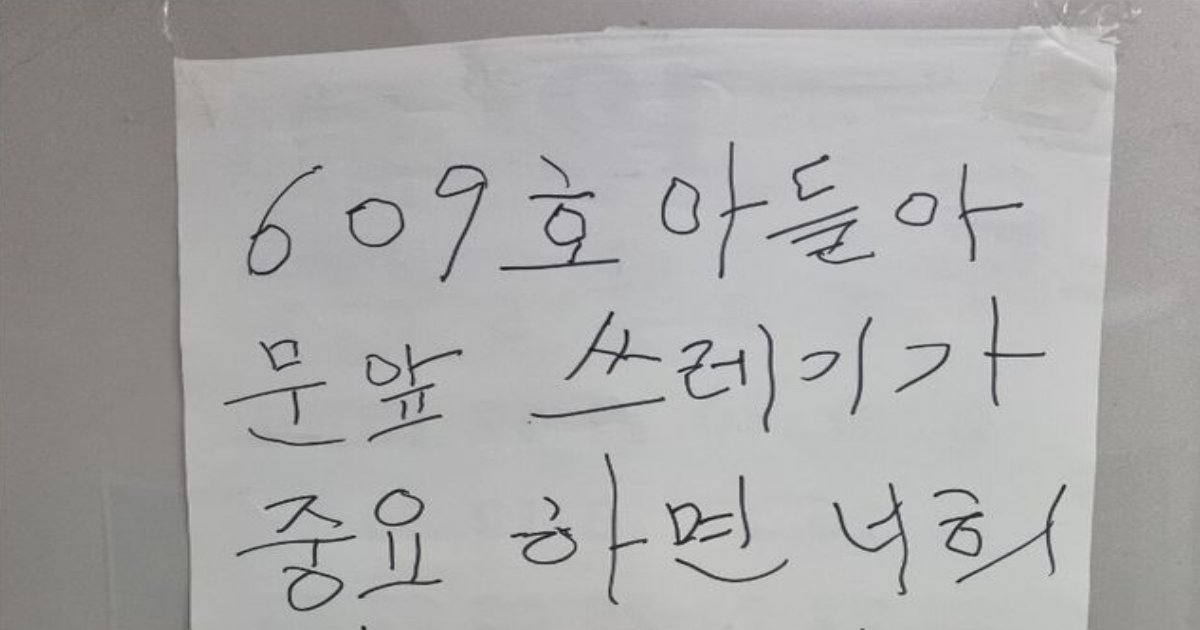 609호 아들아
문앞 쓰레기가
중요 하면 너희